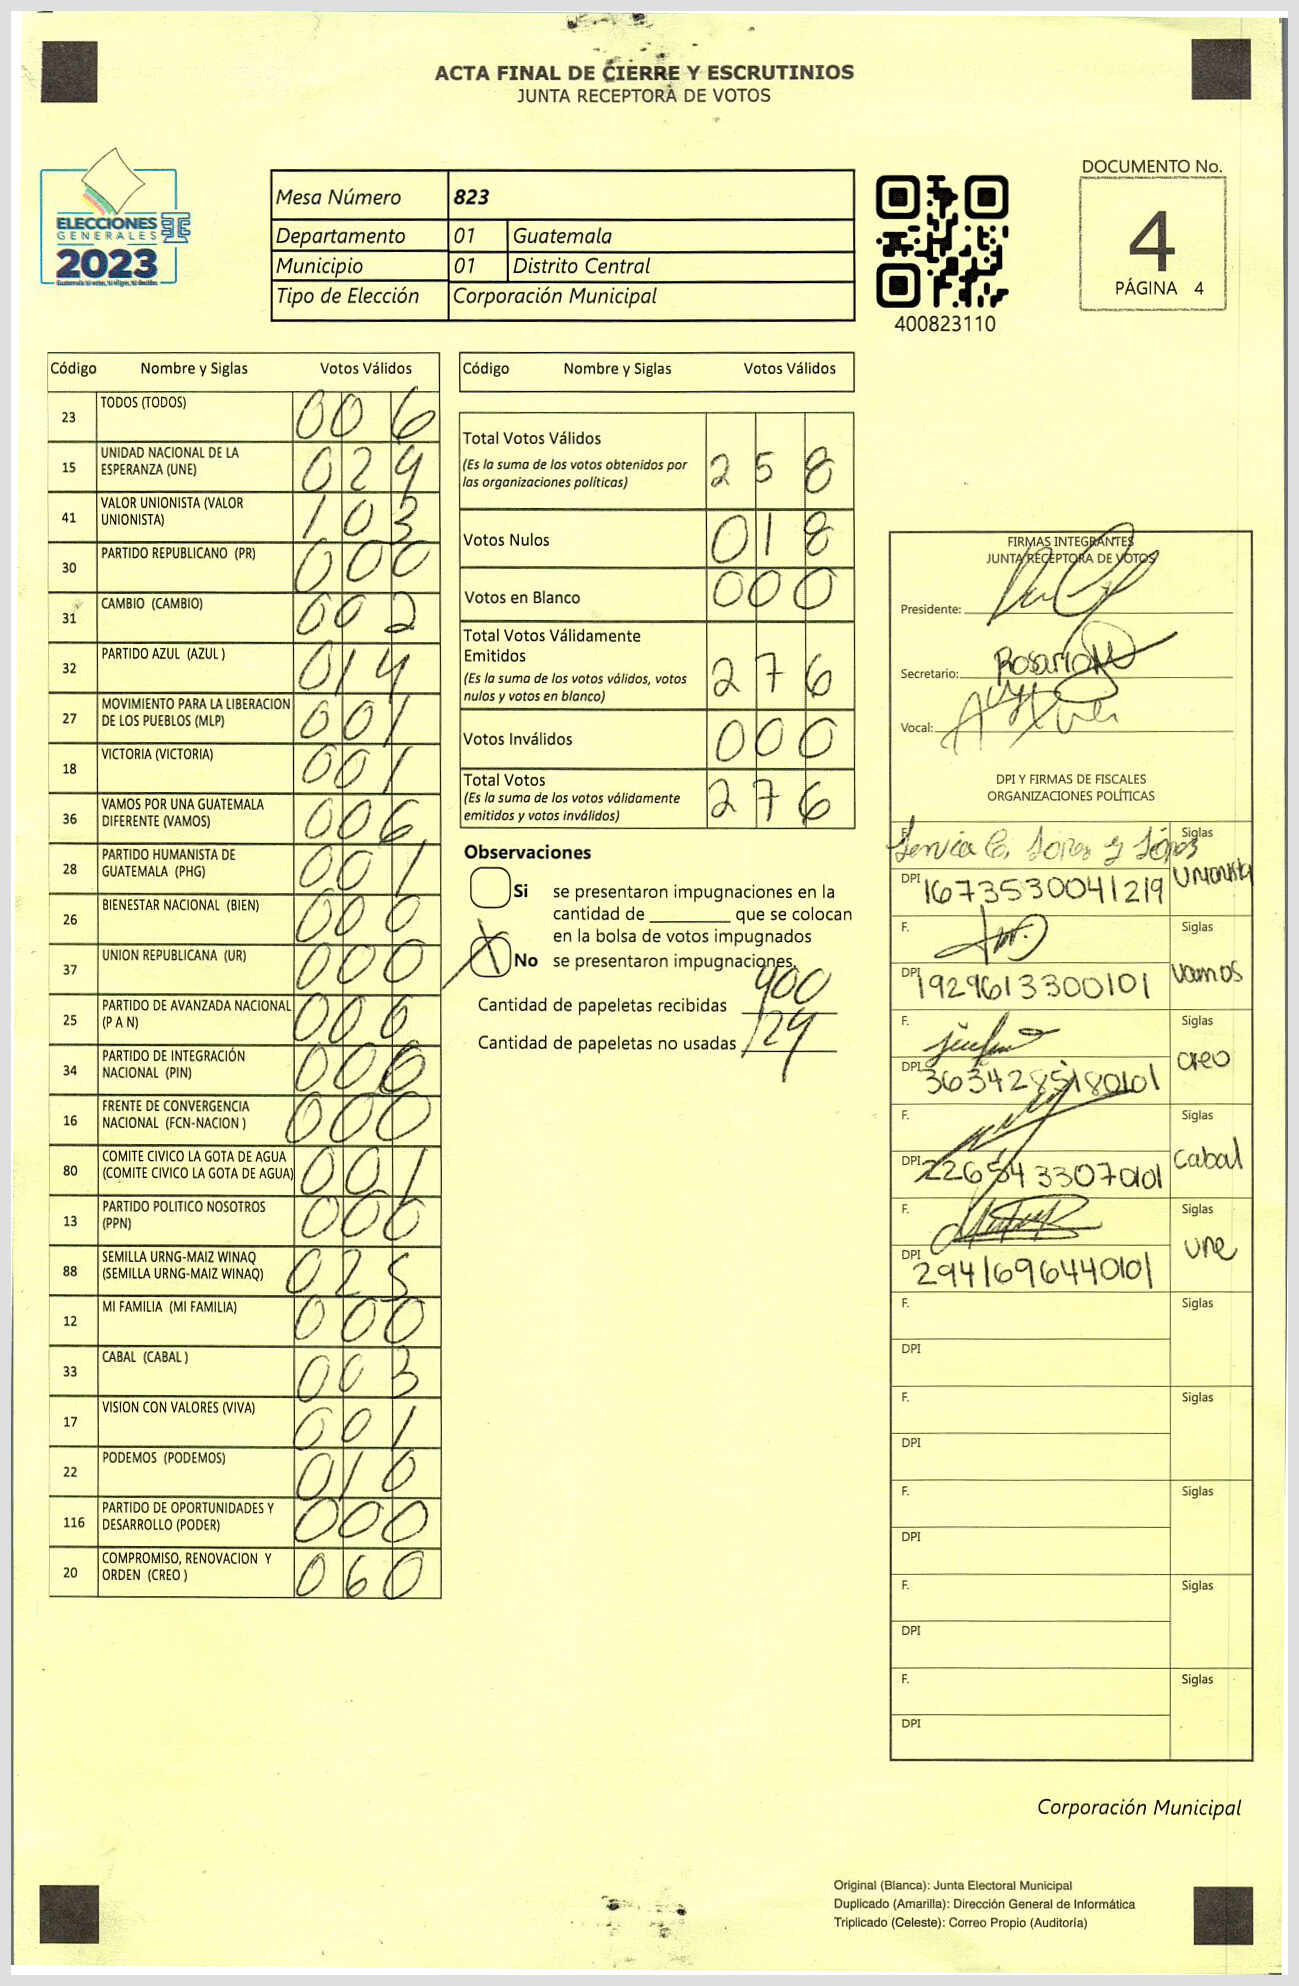 ACTA FINAL DE CIERRE Y ESCRUTINIOS
JUNTA RECEPTORA DE VOTOS
ELECCIONES
GENERALES
2023
Guatemala: tú votas, tú eliges, tú decides
Mesa Número 823
Departamento 01 Guatemala
Municipio 01 Distrito Central
Tipo de Elección Corporación Municipal
400823110
DOCUMENTO No.
4
PÁGINA 4
Código Nombre y Siglas Votos Válidos
23 TODOS (TODOS) 006
15 UNIDAD NACIONAL DE LA
ESPERANZA (UNE) 024
41 VALOR UNIONISTA (VALOR
UNIONISTA) 103
30 PARTIDO REPUBLICANO (PR) 000
31 CAMBIO (CAMBIO) 002
32 PARTIDO AZUL (AZUL ) 014
27 MOVIMIENTO PARA LA LIBERACION
DE LOS PUEBLOS (MLP) 001
18 VICTORIA (VICTORIA) 001
36 VAMOS POR UNA GUATEMALA
DIFERENTE (VAMOS) 006
28 PARTIDO HUMANISTA DE
GUATEMALA (PHG) 001
26 BIENESTAR NACIONAL (BIEN) 000
37 UNION REPUBLICANA (UR) 000
25 PARTIDO DE AVANZADA NACIONAL
(P A N) 000
34 PARTIDO DE INTEGRACIÓN
NACIONAL (PIN) 000
16 FRENTE DE CONVERGENCIA
NACIONAL (FCN-NACION ) 000
80 COMITE CIVICO LA GOTA DE AGUA
(COMITE CIVICO LA GOTA DE AGUA) 001
13 PARTIDO POLITICO NOSOTROS
(PPN) 000
88 SEMILLA URNG-MAIZ WINAQ
(SEMILLA URNG-MAIZ WINAQ) 025
12 MI FAMILIA (MI FAMILIA) 000
33 CABAL (CABAL ) 003
17 VISION CON VALORES (VIVA) 001
22 PODEMOS (PODEMOS) 010
116 PARTIDO DE OPORTUNIDADES Y
DESARROLLO (PODER) 000
20 COMPROMISO, RENOVACION Y
ORDEN (CREO ) 060
Código Nombre y Siglas Votos Válidos
Total Votos Válidos 258
(Es la suma de los votos obtenidos por
las organizaciones políticas)
Votos Nulos 018
Votos en Blanco 000
Total Votos Válidamente
Emitidos 276
(Es la suma de los votos válidos, votos
nulos y votos en blanco)
Votos Inválidos 000
Total Votos 276
(Es la suma de los votos válidamente
emitidos y votos inválidos)
Observaciones
Si se presentaron impugnaciones en la
cantidad de ________ que se colocan
en la bolsa de votos impugnados
X No se presentaron impugnaciones.
Cantidad de papeletas recibidas 400
Cantidad de papeletas no usadas 124
FIRMAS INTEGRANTES
JUNTA RECEPTORA DE VOTOS
Presidente:
Secretario: Rosario
Vocal:
DPI Y FIRMAS DE FISCALES
ORGANIZACIONES POLÍTICAS
F. Siglas
DPI 1673530041219 Unionista
F. Siglas
DPI 1929613300101 Vamos
F. Siglas
DPI 3634285180101 creo
F. Siglas
DPI 2265433070101 cabal
F. Siglas
DPI 2941696440101 une
F. Siglas
DPI
F. Siglas
DPI
F. Siglas
DPI
F. Siglas
DPI
F. Siglas
DPI
Corporación Municipal
Original (Blanca): Junta Electoral Municipal
Duplicado (Amarilla): Dirección General de Informática
Triplicado (Celeste): Correo Propio (Auditoría)